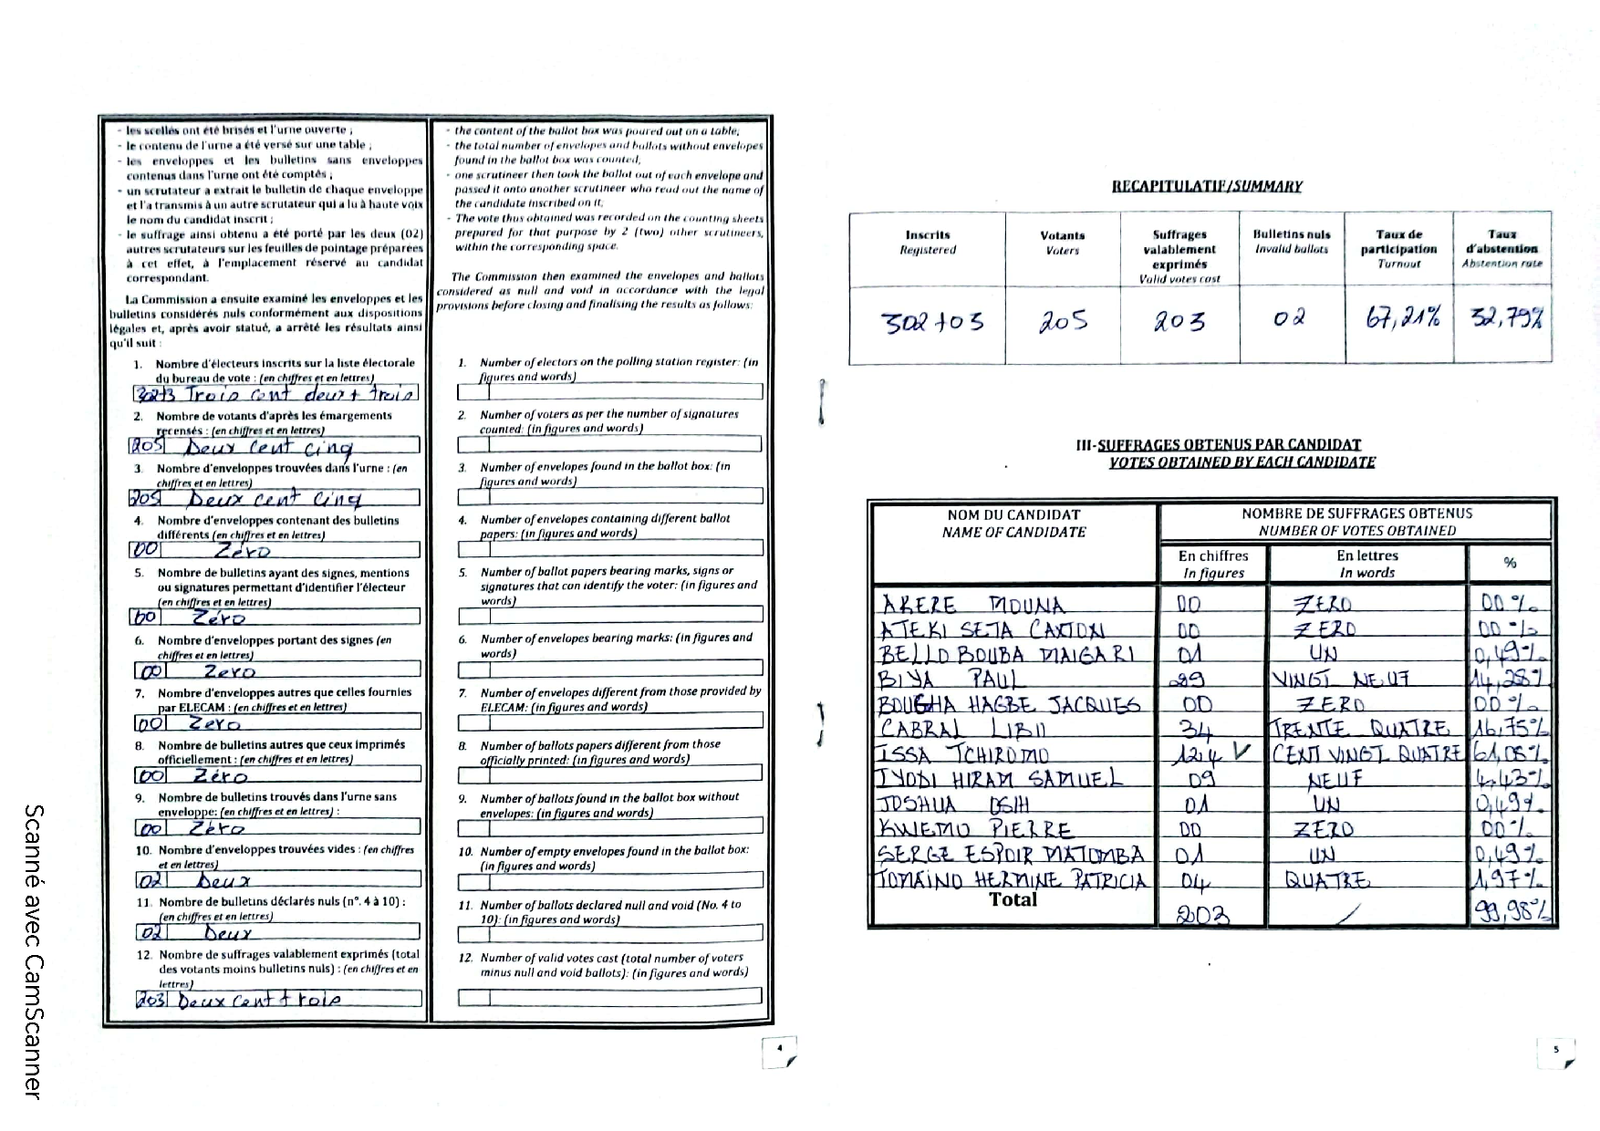 - les scellés ont été brisés et l'urne ouverte ;
- le contenu de l'urne a été versé sur une table ;
- les enveloppes et les bulletins sans enveloppes
contenus dans l'urne ont été comptés ;
- un scrutateur a extrait le bulletin de chaque enveloppe
et l'a transmis à un autre scrutateur qui a lu à haute voix
le nom du candidat inscrit ;
- le suffrage ainsi obtenu a été porté par les deux (02)
autres scrutateurs sur les feuilles de pointage préparées
à cet effet, à l'emplacement réservé au candidat
correspondant.
La Commission a ensuite examiné les enveloppes et les
bulletins considérés nuls conformément aux dispositions
légales et, après avoir statué, a arrêté les résultats ainsi
qu'il suit :
1. Nombre d'électeurs inscrits sur la liste électorale
du bureau de vote : (en chiffres et en lettres)
302+3 Trois cent deux + trois
2. Nombre de votants d'après les émargements
recensés : (en chiffres et en lettres)
205 Deux cent cinq
3. Nombre d'enveloppes trouvées dans l'urne : (en
chiffres et en lettres)
205 Deux cent cinq
4. Nombre d'enveloppes contenant des bulletins
différents (en chiffres et en lettres)
00 Zéro
5. Nombre de bulletins ayant des signes, mentions
ou signatures permettant d'identifier l'électeur
(en chiffres et en lettres)
00 Zéro
6. Nombre d'enveloppes portant des signes (en
chiffres et en lettres)
00 Zero
7. Nombre d'enveloppes autres que celles fournies
par ELECAM : (en chiffres et en lettres)
00 Zero
8. Nombre de bulletins autres que ceux imprimés
officiellement : (en chiffres et en lettres)
00 Zéro
9. Nombre de bulletins trouvés dans l'urne sans
enveloppe: (en chiffres et en lettres) :
00 Zéro
10. Nombre d'enveloppes trouvées vides : (en chiffres
et en lettres)
02 Deux
11. Nombre de bulletins déclarés nuls (n°. 4 à 10) :
(en chiffres et en lettres)
02 Deux
12. Nombre de suffrages valablement exprimés (total
des votants moins bulletins nuls) : (en chiffres et en
lettres)
203 Deux cent trois
- the content of the ballot box was poured out on a table;
- the total number of envelopes and ballots without envelopes
found in the ballot box was counted,
- one scrutineer then took the ballot out of each envelope and
passed it onto another scrutineer who read out the name of
the candidate inscribed on it;
- The vote thus obtained was recorded on the counting sheets
prepared for that purpose by 2 (two) other scrutineers,
within the corresponding space.
The Commission then examined the envelopes and ballots
considered as null and void in accordance with the legal
provisions before closing and finalising the results as follows:
1. Number of electors on the polling station register: (in
figures and words)
2. Number of voters as per the number of signatures
counted: (in figures and words)
3. Number of envelopes found in the ballot box: (in
figures and words)
4. Number of envelopes containing different ballot
papers: (in figures and words)
5. Number of ballot papers bearing marks, signs or
signatures that can identify the voter: (in figures and
words)
6. Number of envelopes bearing marks: (in figures and
words)
7. Number of envelopes different from those provided by
ELECAM: (in figures and words)
8. Number of ballots papers different from those
officially printed: (in figures and words)
9. Number of ballots found in the ballot box without
envelopes: (in figures and words)
10. Number of empty envelopes found in the ballot box:
(in figures and words)
11. Number of ballots declared null and void (No. 4 to
10): (in figures and words)
12. Number of valid votes cast (total number of voters
minus null and void ballots): (in figures and words)
4
RECAPITULATIF/SUMMARY
Inscrits Votants Suffrages Bulletins nuls Taux de Taux
Registered Voters valablement Invalid ballots participation d'abstention
exprimés Turnout Abstention rate
Valid votes cast
302+03 205 203 02 67,21% 32,79%
III-SUFFRAGES OBTENUS PAR CANDIDAT
VOTES OBTAINED BY EACH CANDIDATE
NOM DU CANDIDAT NOMBRE DE SUFFRAGES OBTENUS
NAME OF CANDIDATE NUMBER OF VOTES OBTAINED
En chiffres En lettres %
In figures In words
AKERE MOUNA 00 ZERO 00%
ATEKI SETA CAXTON 00 ZERO 00%
BELLO BOUBA MAIGARI 01 UN 0,49%
BIYA PAUL 29 VINGT NEUF 14,28%
BOUGHA HAGBE JACQUES 00 ZERO 00%
CABRAL LIBII 34 TRENTE QUATRE 16,75%
ISSA TCHIROMO 124 ✓ CENT VINGT QUATRE 61,08%
IYODI HIRAM SAMUEL 09 NEUF 4,43%
JOSHUA OSIH 01 UN 0,49%
KWEMO PIERRE 00 ZERO 00%
SERGE ESPOIR MATOMBA 01 UN 0,49%
TOMAINO HERMINE PATRICIA 04 QUATRE 1,97%
Total 203 / 99,98%
5
Scanné avec CamScanner